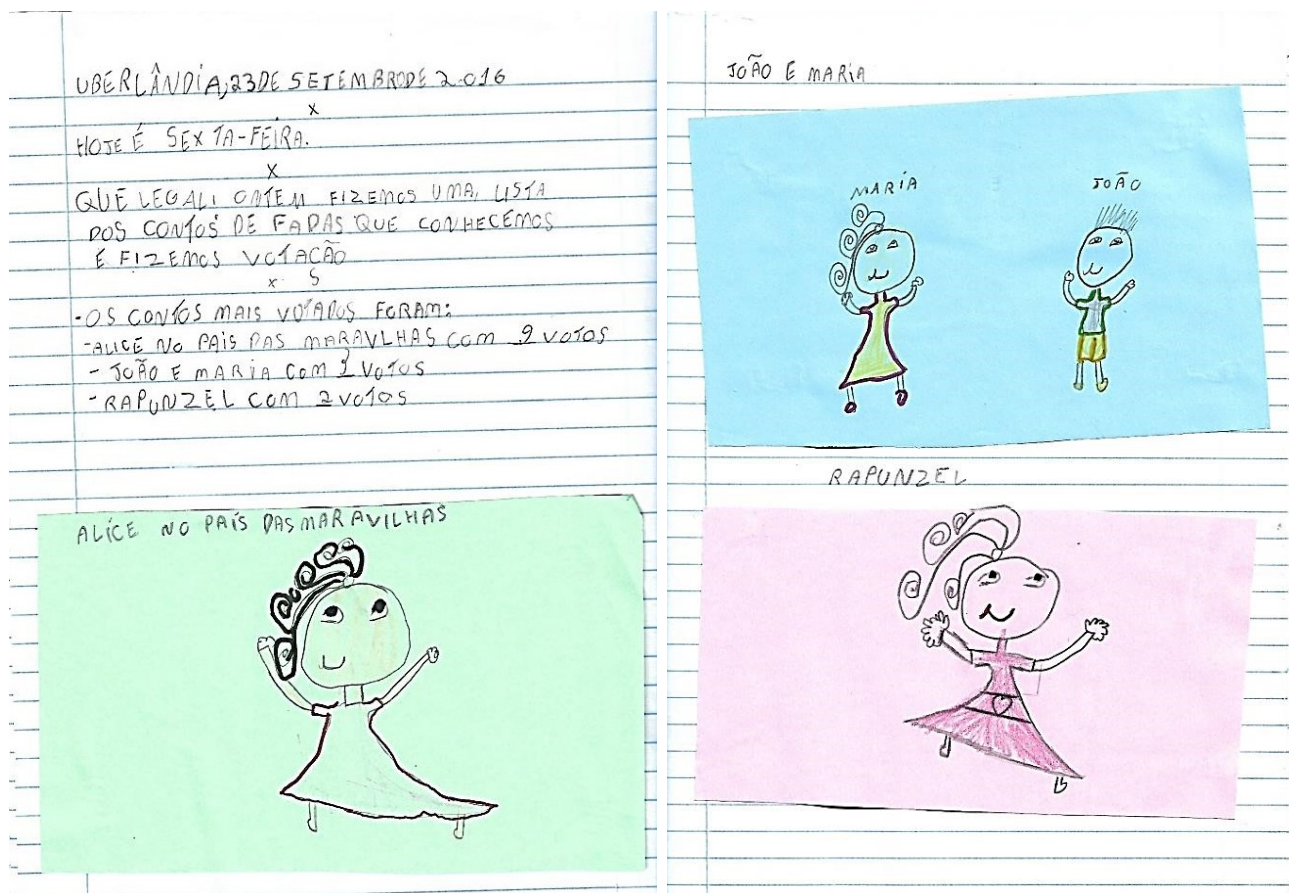 UBERLÂNDIA, 23 DE SETEMBRO DE 2016
x
HOJE É SEXTA-FEIRA.
x
QUE LEGAL! ONTEM FIZEMOS UMA LISTA
DOS CONTOS DE FADAS QUE CONHECEMOS
E FIZEMOS VOTACÃO
x S
·OS CONTOS MAIS VOTADOS FORAM:
-ALICE NO PAIS DAS MARAVLHAS COM 9 VOTOS
- JOÃO E MARIA COM 1 VOTOS
-RAPUNZEL COM 2 VOTOS
ALICE NO PAÍS DAS MARAVILHAS
JOÃO E MARIA
MARIA
JOÃO
RAPUNZEL